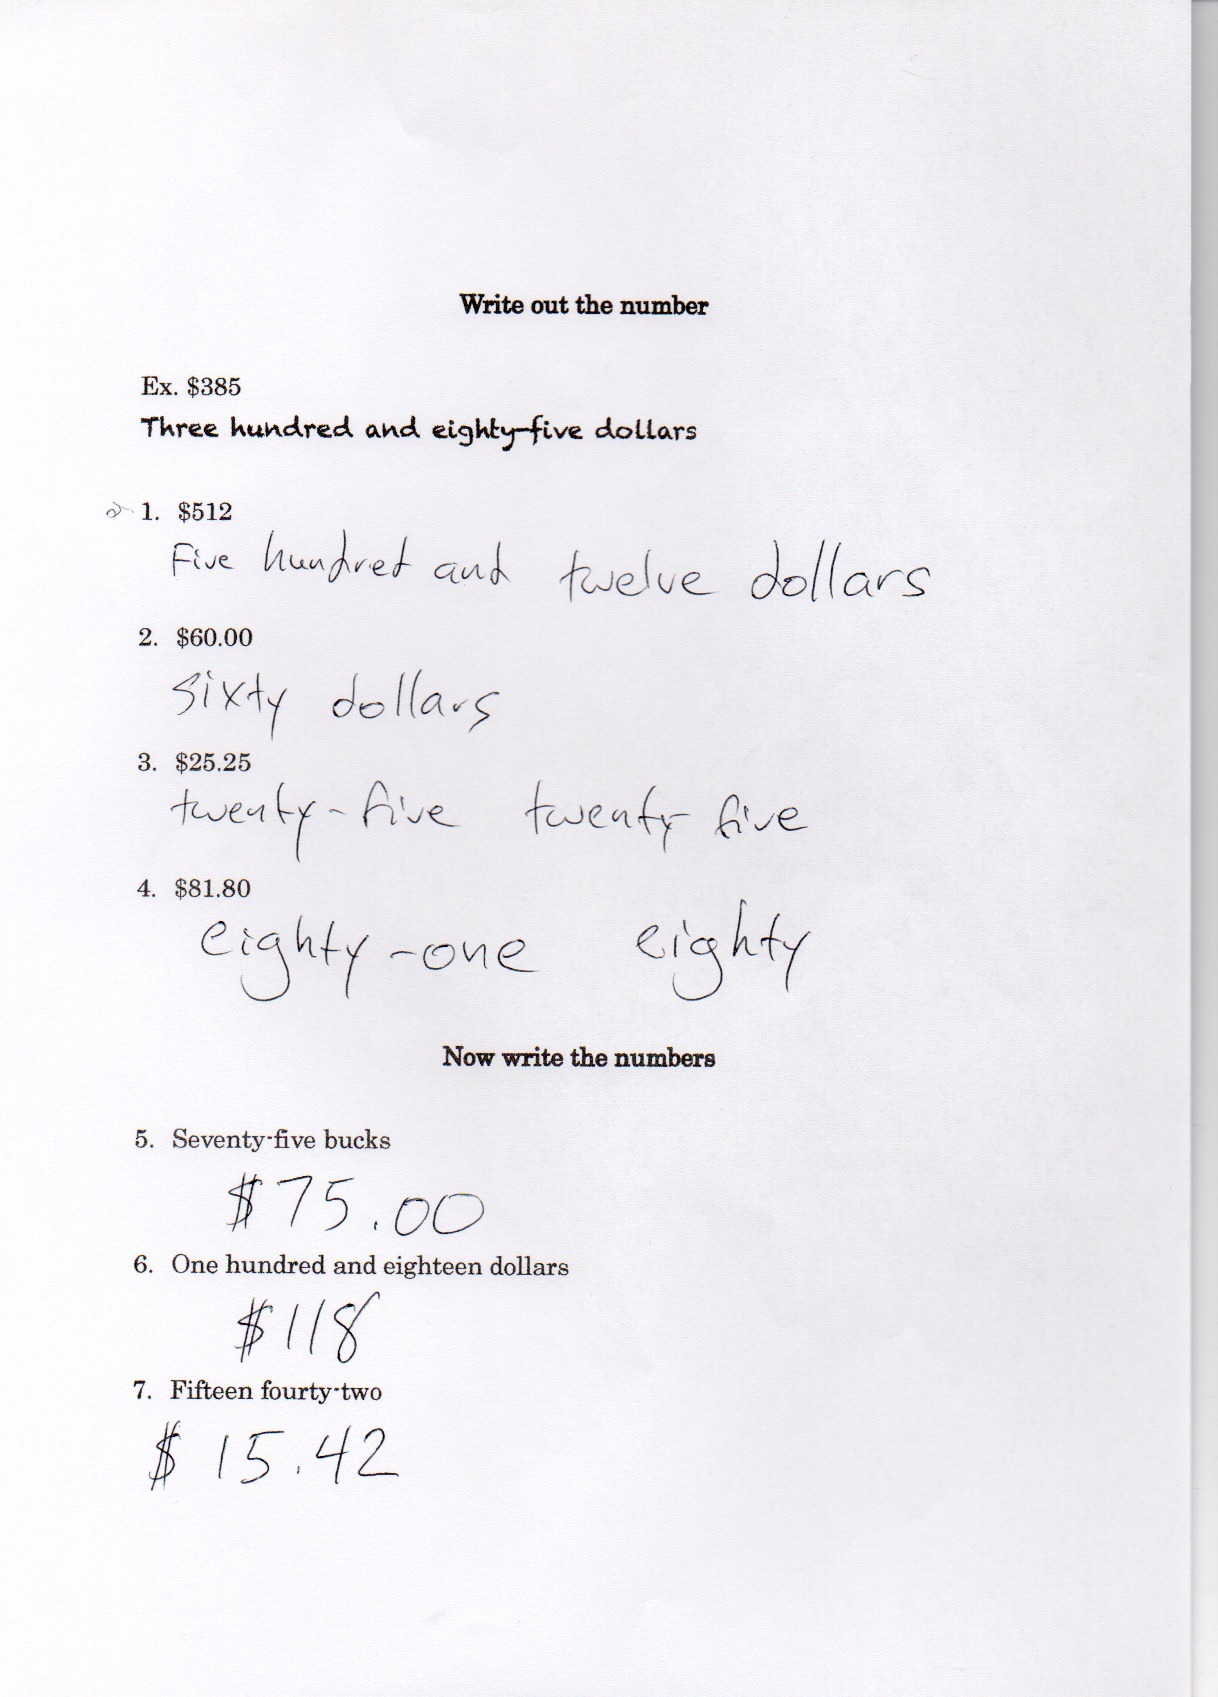 Write out the number
Ex. $385
Three hundred and eighty-five dollars
1. $512
Five hundred and twelve dollars
2. $60.00
sixty dollars
3. $25.25
twenty-five twenty five
4. $81.80
eighty-one eighty
Now write the numbers
5. Seventy-five bucks
$75.00
6. One hundred and eighteen dollars
$118
7. Fifteen fourty-two
$ 15.42